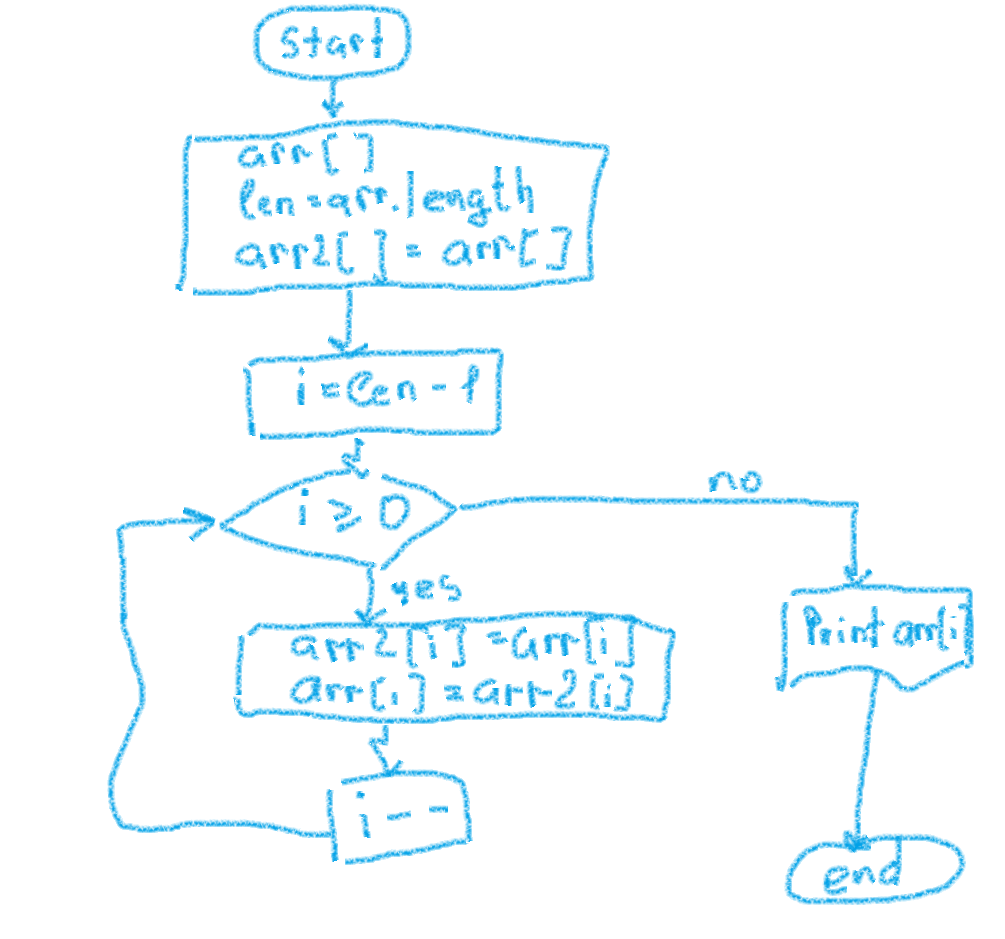 start
arr[ ]
len=arr.length
arr2[ ] = arr[ ]
i = len - 1
i ≥ 0
no
yes
arr2[i] = arr[i]
arr[i] = arr2[i]
i - -
Print arr[i]
end